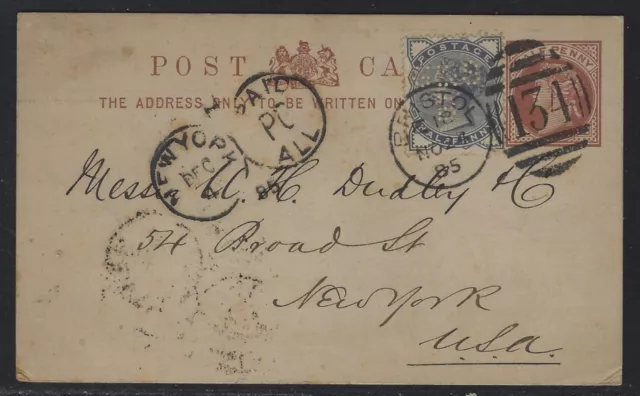 POST CA
THE ADDRESS ONLY TO BE WRITTEN ON
POSTAGE
HALFPENNY
PENNY
BRISTOL
NO
85
134
PAID
ALL
NEW YORK
DEC
85
Messrs U. H. Dudley & Co
54 Broad St
New York
U.S.A.